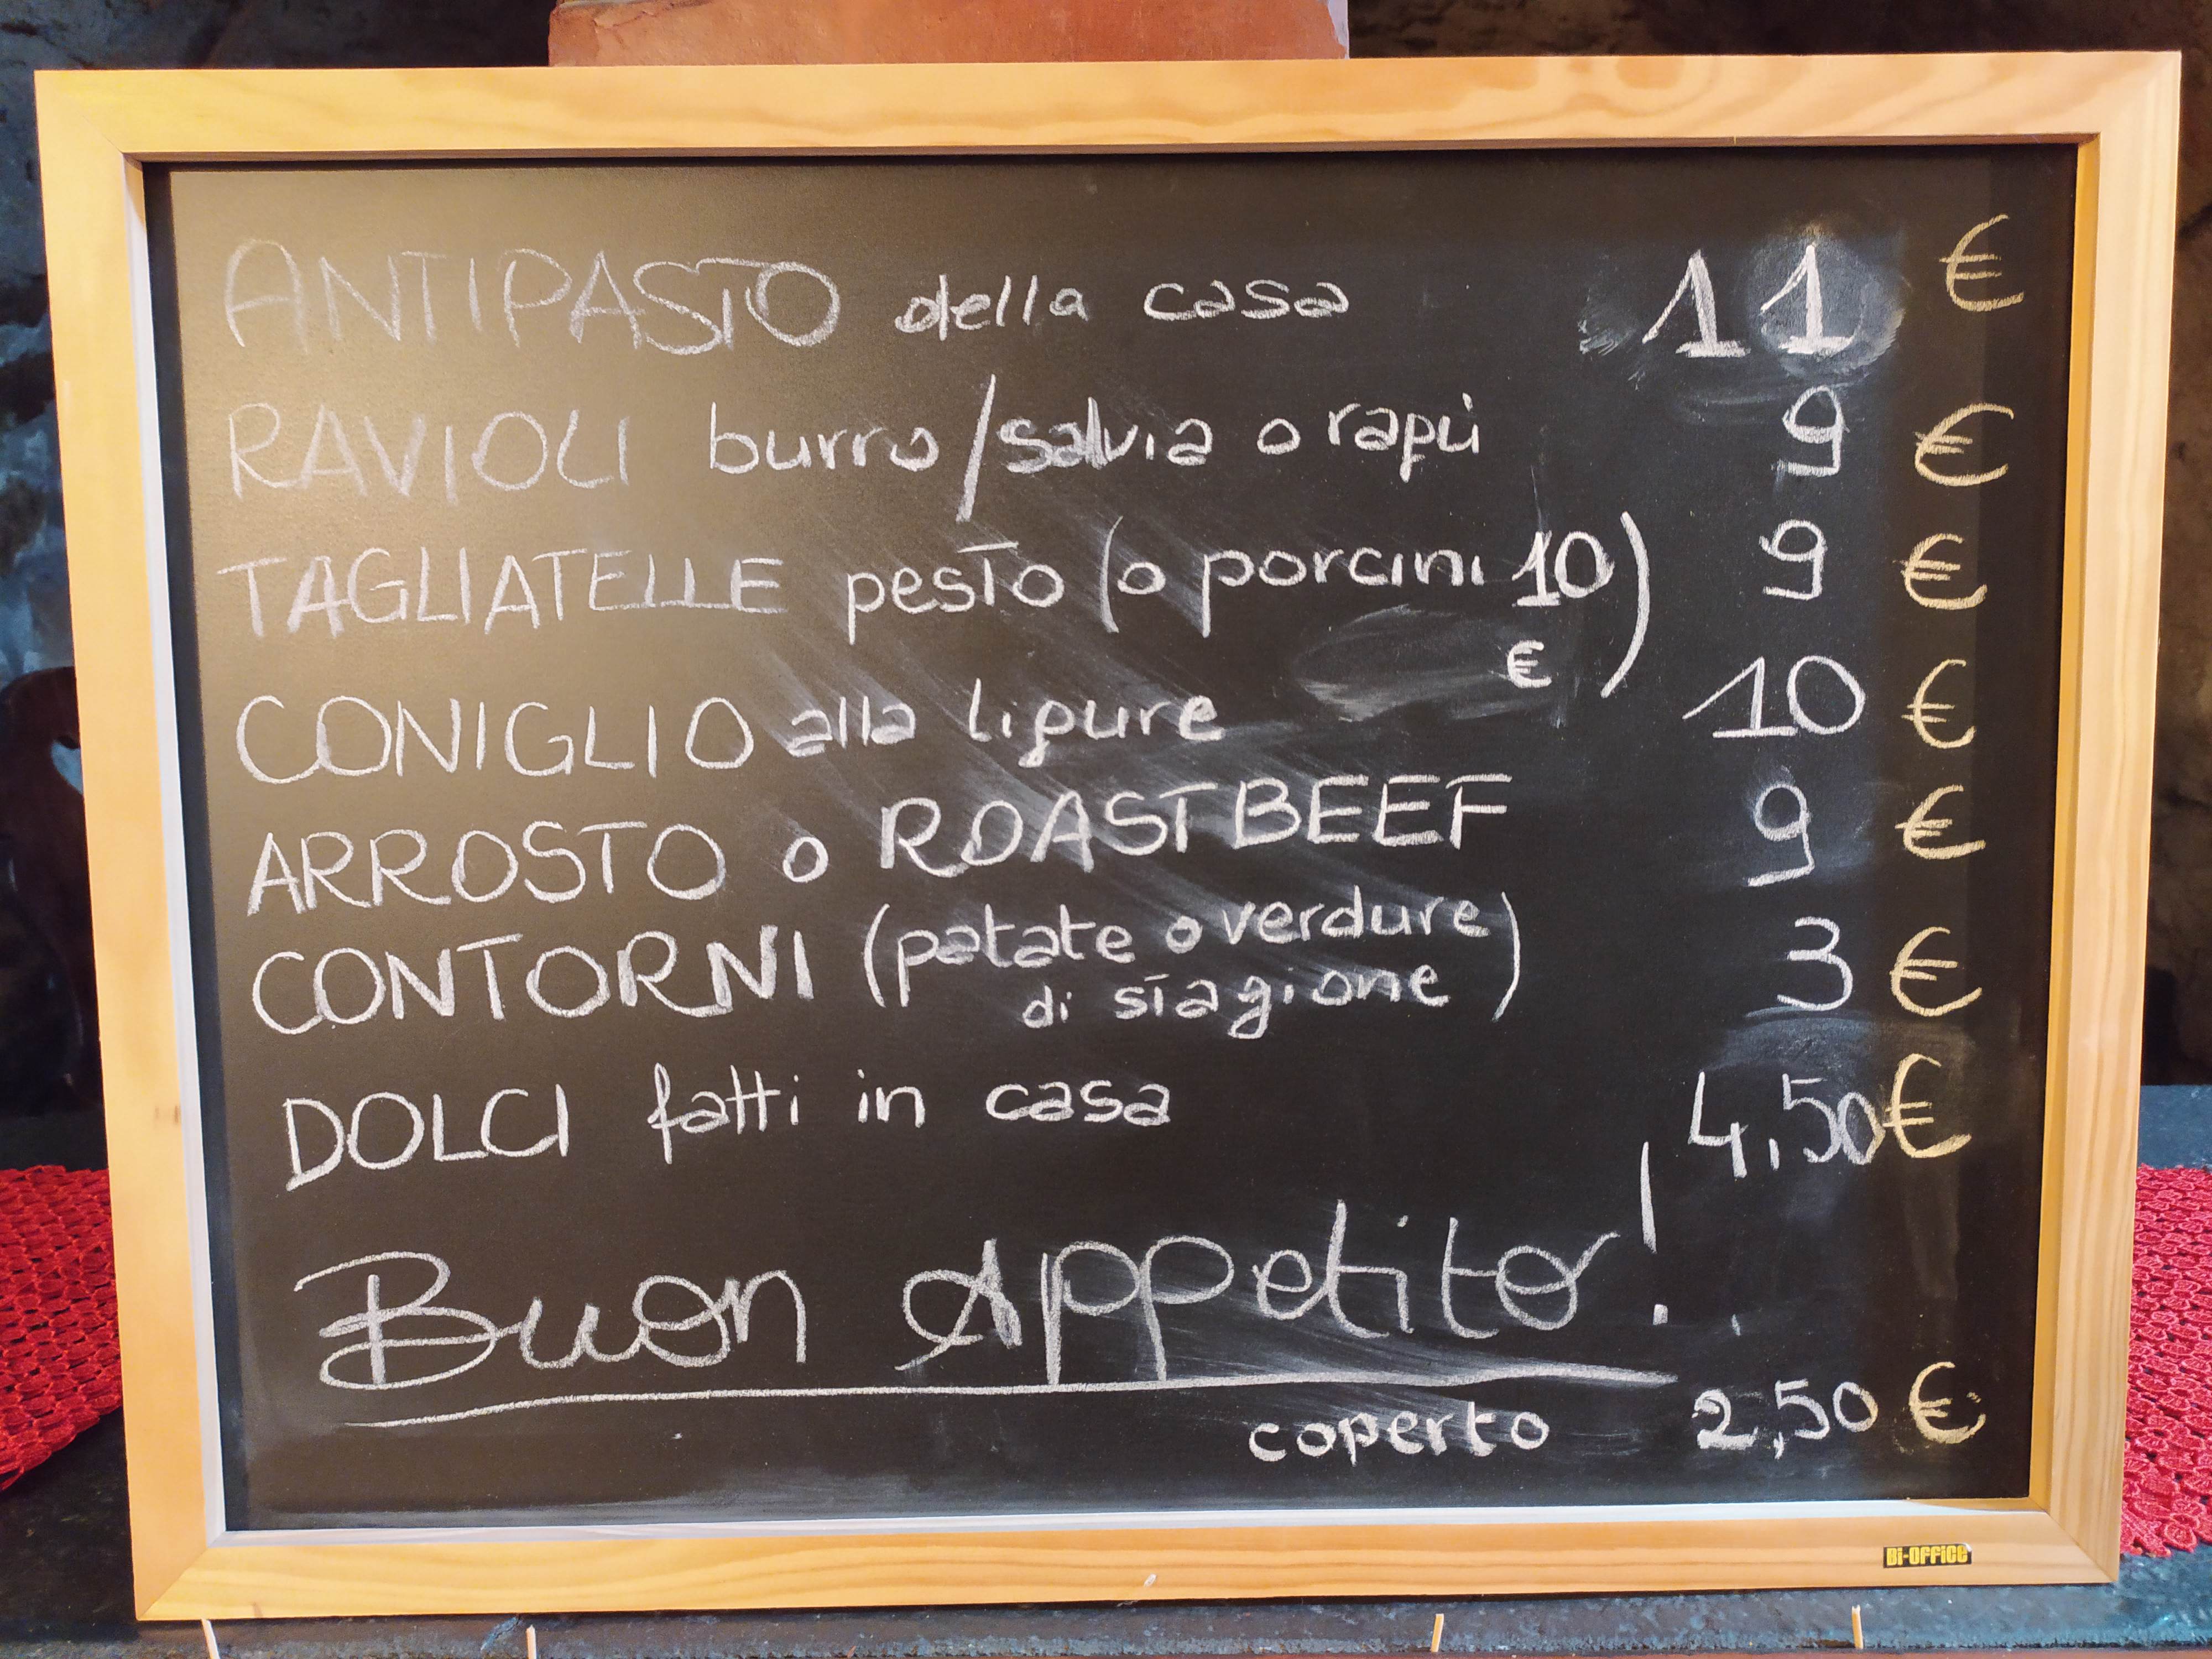 ANTIPASTO della casa 11 €
RAVIOLI burro/salvia o ragù 9 €
TAGLIATELLE pesto (o porcini 10 €) 9 €
CONIGLIO alla ligure 10 €
ARROSTO o ROASTBEEF 9 €
CONTORNI (patate o verdure
di stagione) 3 €
DOLCI fatti in casa 4,50 €
Buon Appetito!
coperto 2,50 €
Bi-OFFICE